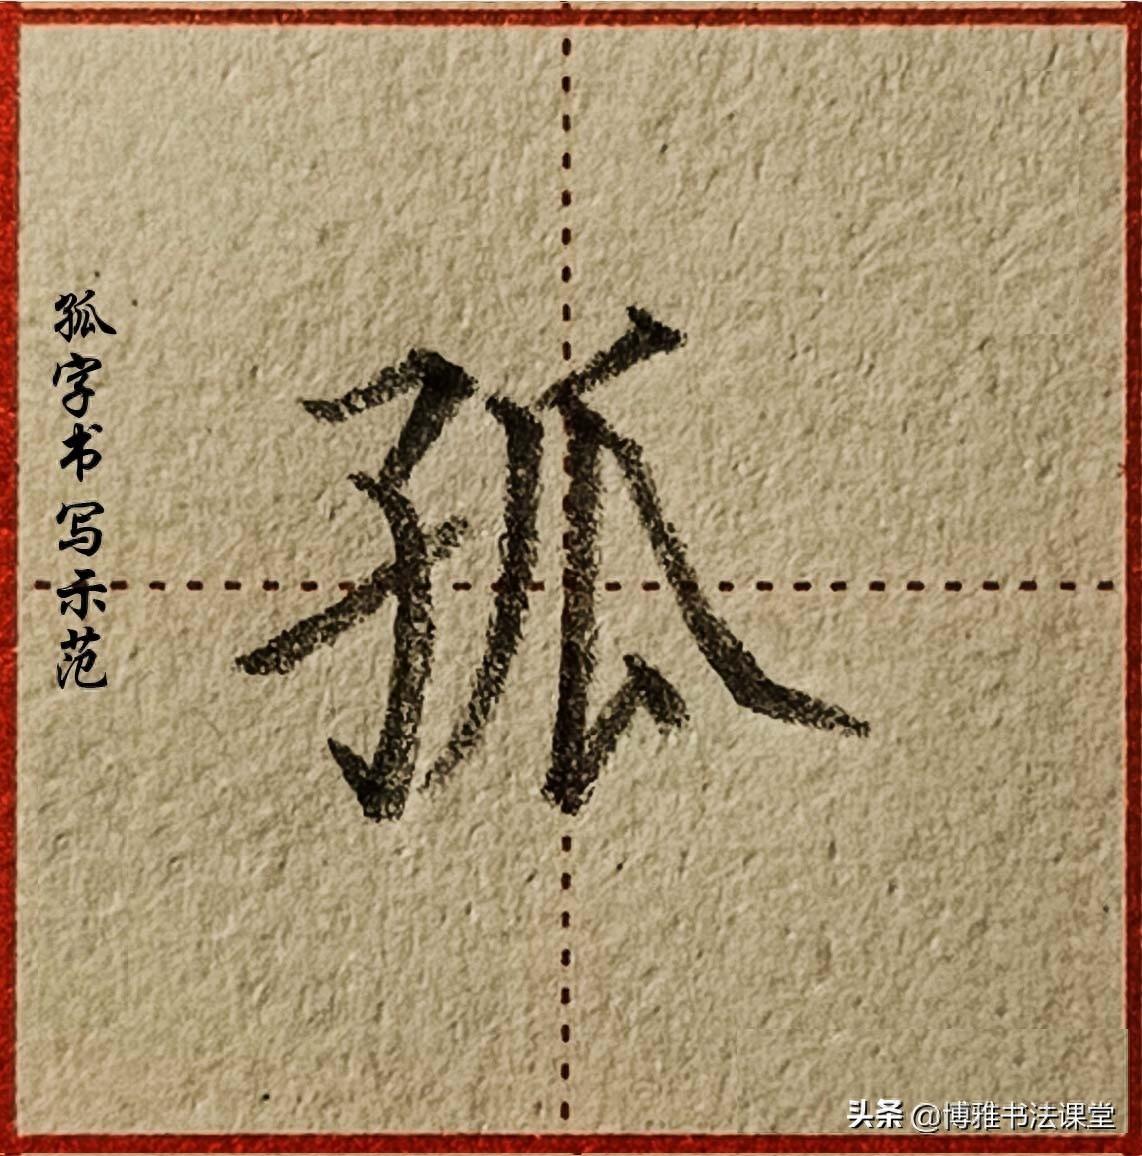 孤字书写示范
孤
头条 @博雅书法课堂